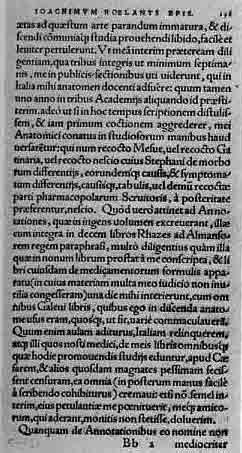 IOACHIMVM ROELANTS EPIS. 196
ætas ad quæstum arte parandum immatura, & di-
scendi cōmuniaq́; studia prouehendi libido, facile et
leniter pertulerunt. Vt meã interim prætereám dili
gentiam, qua tribus integris ut minimum septima-
nis, me in publicis sectionibus uti uiderunt, qui in
Italia mihi anatomen docenti adfuere: quum tamen
uno anno in tribus Academijs aliquando id præsti-
terim. adeò ut si in hoc tempus scriptionem distulis-
sem, & iam primum coctionem aggrederer, mei
Anatomici conatus in studiosorum manibus haud
uersarētur: qui num recocto Mesue, uel recocto Ga
tinaria, uel recocto nescio cuius Stephani de morbo
rum differentijs, eorundemq́; causis, & symptoma-
tum differentijs, causisq́;, tabulis, uel demũ recoctæ
parti pharmacopolarum Scruitoris, à posteritate
præferentur, nescio. Quòd uerò attinet ad Anno-
tationes, quæ in ingens uolumen excreuerant, illæ
cum integra in decem libros Rhazes ad Almanso-
rem regem paraphrasi, multò diligentius quàm illa
quæ in nonum librum prostat à me conscripta, & li
bri cuiusdam de medicamentorum formulis appa-
ratu (in cuius materiam multa meo iudicio non inu-
tilia congesseram) una die mihi interierunt, cum om
nibus Galeni libris, quibus ego in discenda anato-
me usus eram, quosq́;, ut fit, uariè commaculauera.
Quum enim aulam aditurus, Italiam relinquerem,
atq́; illi quos nosti medici, de meis libris omnibusq́;
quæ hodie promouendis studijs eduntur, apud Cæ
sarem, & alios quosdam magnates pessimam fecis-
sent censuram, ea omnia (in posterum manus facilè
à scribendo cohibiturus) cremaui: etsi nō semel in-
terim, eius petulantiæ me pœnituerit, meq́; amico-
rum, qui aderant, monitis non stetisse, doluerim.
Quanquam de Annotationibus eo nomine non
Bb 2 mediocriter